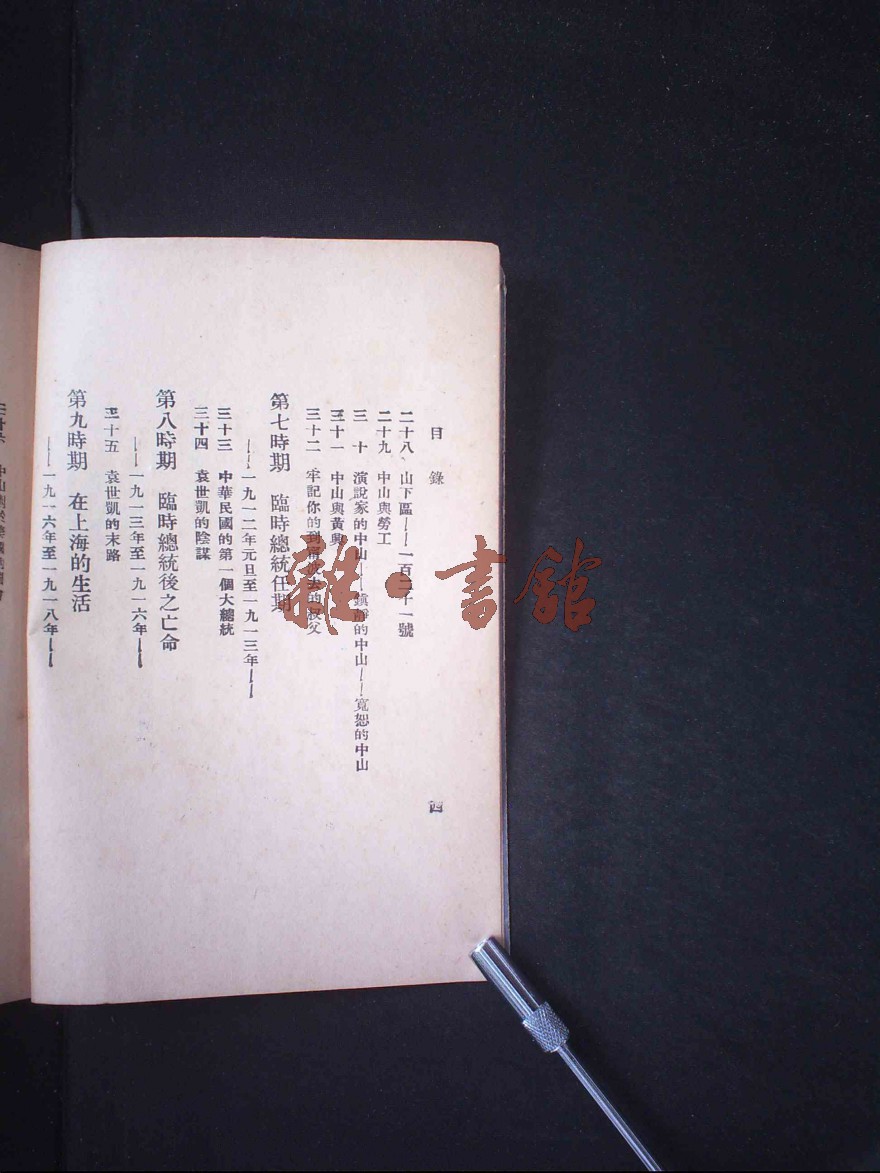 目錄
二十八 山下區——一百二十一號
二十九 中山與勞工
三十 演說家的中山——鎮靜的中山——寬恕的中山
三十一 中山與黃興
三十二 牢記你的到 去的叔父
第七時期 臨時總統任期
——一九一二年元旦至一九一三年——
三十三 中華民國的第一個大總統
三十四 袁世凱的陰謀
第八時期 臨時總統後之亡命
——一九一三年至一九一六年——
三十五 袁世凱的末路
第九時期 在上海的生活
——一九一六年至一九一八年——
四
雜·書館